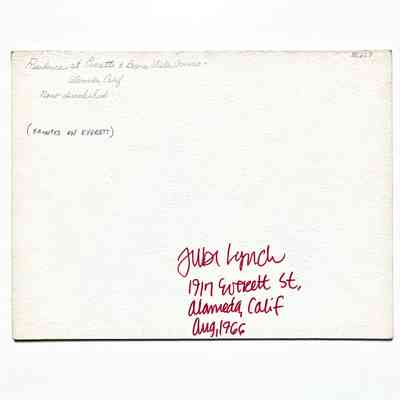 Residence at Everett & Buena Vista Avenue -
Alameda Calif
Now demolished
(FRONTED ON EVERETT)
Lynch
1917 Everett St,
Alameda, Calif
Aug, 1966